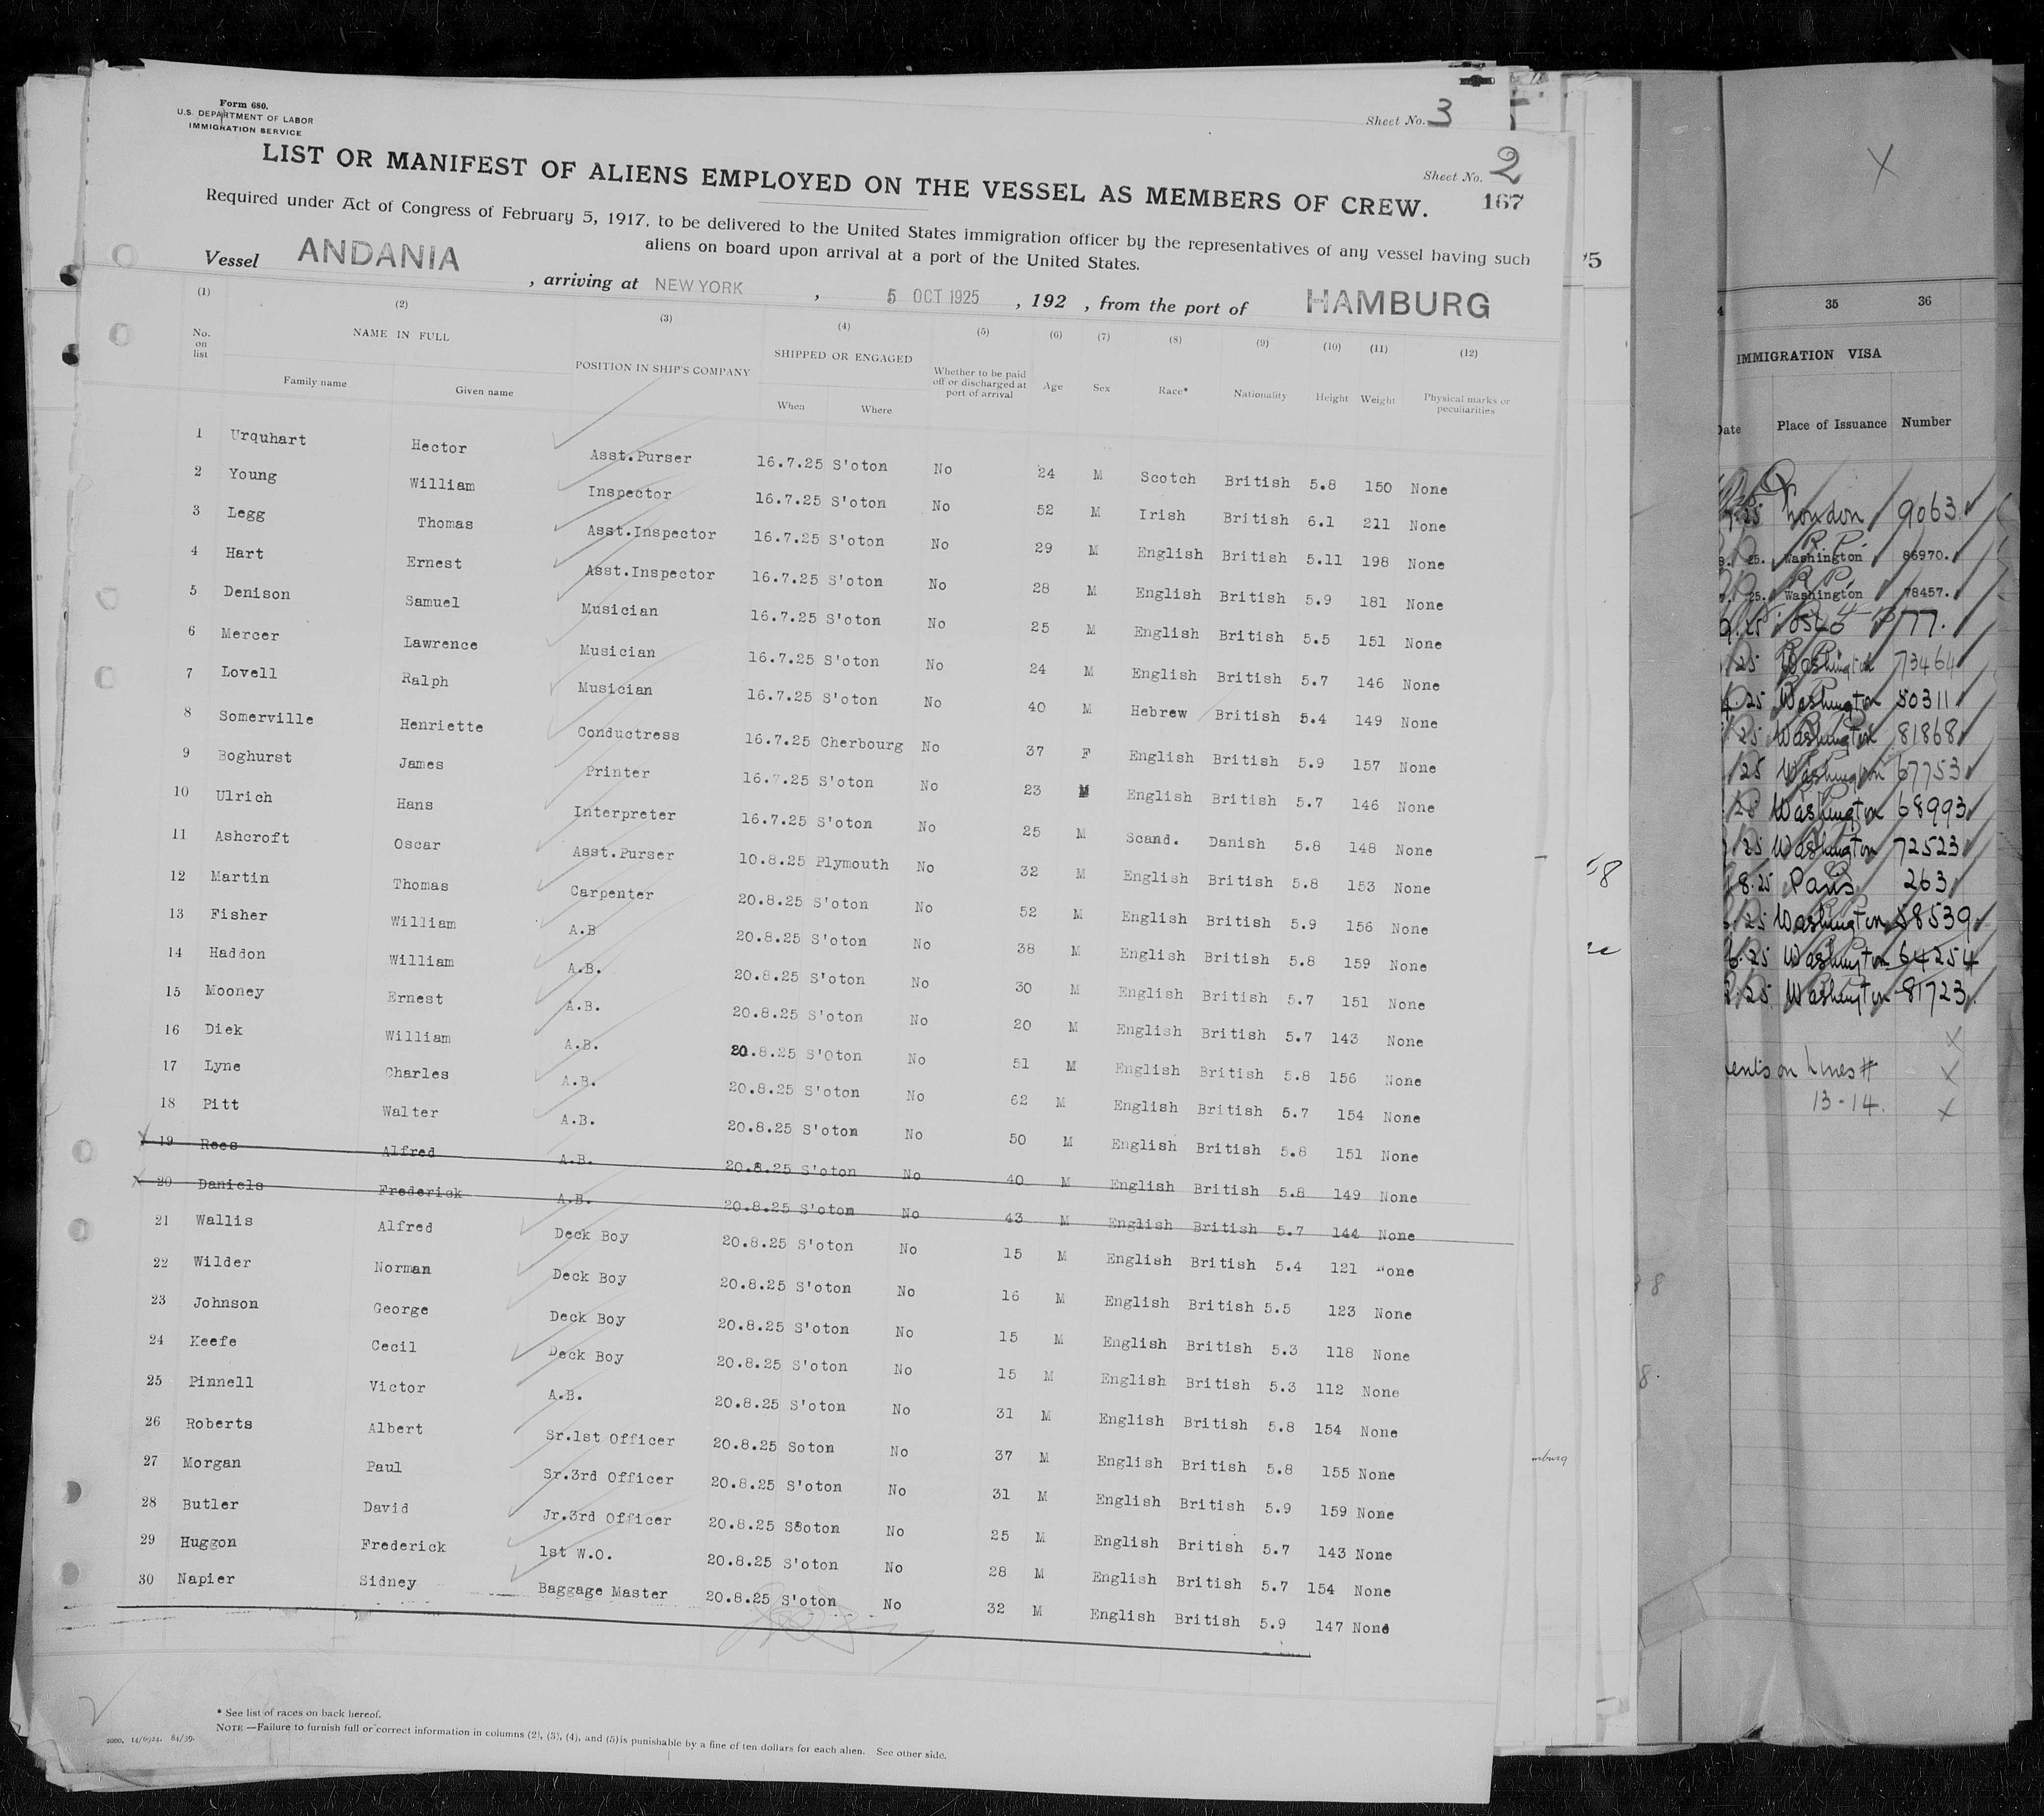 Form 680.
U.S. DEPARTMENT OF LABOR
IMMIGRATION SERVICE
Sheet No. 3
Sheet No. 2
167
LIST OR MANIFEST OF ALIENS EMPLOYED ON THE VESSEL AS MEMBERS OF CREW.
Required under Act of Congress of February 5, 1917, to be delivered to the United States immigration officer by the representatives of any vessel having such
aliens on board upon arrival at a port of the United States.
Vessel ANDANIA , arriving at NEW YORK , 5 OCT 1925 , 192 , from the port of HAMBURG
(1) (2) (3) (4) (5) (6) (7) (8) (9) (10) (11) (12)
No. on list NAME IN FULL POSITION IN SHIP'S COMPANY SHIPPED OR ENGAGED Whether to be paid off or discharged at port of arrival Age Sex Race* Nationality Height Weight Physical marks or peculiarities
Family name Given name When Where
1 Urquhart Hector Asst.Purser 16.7.25 S'oton No 24 M Scotch British 5.8 150 None
2 Young William Inspector 16.7.25 S'oton No 52 M Irish British 6.1 211 None
3 Legg Thomas Asst.Inspector 16.7.25 S'oton No 29 M English British 5.11 198 None
4 Hart Ernest Asst.Inspector 16.7.25 S'oton No 28 M English British 5.9 181 None
5 Denison Samuel Musician 16.7.25 S'oton No 25 M English British 5.5 151 None
6 Mercer Lawrence Musician 16.7.25 S'oton No 24 M English British 5.7 146 None
7 Lovell Ralph Musician 16.7.25 S'oton No 40 M Hebrew British 5.4 149 None
8 Somerville Henriette Conductress 16.7.25 Cherbourg No 37 F English British 5.9 157 None
9 Boghurst James Printer 16.7.25 S'oton No 23 M English British 5.7 146 None
10 Ulrich Hans Interpreter 16.7.25 S'oton No 25 M Scand. Danish 5.8 148 None
11 Ashcroft Oscar Asst.Purser 10.8.25 Plymouth No 32 M English British 5.8 153 None
12 Martin Thomas Carpenter 20.8.25 S'oton No 52 M English British 5.9 156 None
13 Fisher William A.B 20.8.25 S'oton No 38 M English British 5.8 159 None
14 Haddon William A.B. 20.8.25 S'oton No 30 M English British 5.7 151 None
15 Mooney Ernest A.B. 20.8.25 S'oton No 20 M English British 5.7 143 None
16 Diek William A.B. 20.8.25 S'Oton No 51 M English British 5.8 156 None
17 Lyne Charles A.B. 20.8.25 S'oton No 62 M English British 5.7 154 None
18 Pitt Walter A.B. 20.8.25 S'oton No 50 M English British 5.8 151 None
19 Rees Alfred A.B. 20.8.25 S'oton No 40 M English British 5.8 149 None
20 Daniels Frederick A.B. 20.8.25 S'oton No 43 M English British 5.7 144 None
21 Wallis Alfred Deck Boy 20.8.25 S'oton No 15 M English British 5.4 121 None
22 Wilder Norman Deck Boy 20.8.25 S'oton No 16 M English British 5.5 123 None
23 Johnson George Deck Boy 20.8.25 S'oton No 15 M English British 5.3 118 None
24 Keefe Cecil Deck Boy 20.8.25 S'oton No 15 M English British 5.3 112 None
25 Pinnell Victor A.B. 20.8.25 S'oton No 31 M English British 5.8 154 None
26 Roberts Albert Sr.1st Officer 20.8.25 Soton No 37 M English British 5.8 155 None
27 Morgan Paul Sr.3rd Officer 20.8.25 S'oton No 31 M English British 5.9 159 None
28 Butler David Jr.3rd Officer 20.8.25 S8oton No 25 M English British 5.7 143 None
29 Huggon Frederick 1st W.O. 20.8.25 S'oton No 28 M English British 5.7 154 None
30 Napier Sidney Baggage Master 20.8.25 S'oton No 32 M English British 5.9 147 None
* See list of races on back hereof.
NOTE —Failure to furnish full or correct information in columns (2), (3), (4), and (5) is punishable by a fine of ten dollars for each alien. See other side.
2000. 14/6924. 84/39.
35 36
IMMIGRATION VISA
Date Place of Issuance Number
London 9063
R.P.
25. Washington 86970.
R.P.
25. Washington 78457.
25 Oslo 77.
25 Washington 73464
25 Washington 50311
25 Washington 81868
25 Washington 67753
25 Washington 68993
25 Washington 72523
8.25 Paris 263
25 Washington 58539
6.25 Washington 64254
25 Washington 81723
on lines #
13-14.